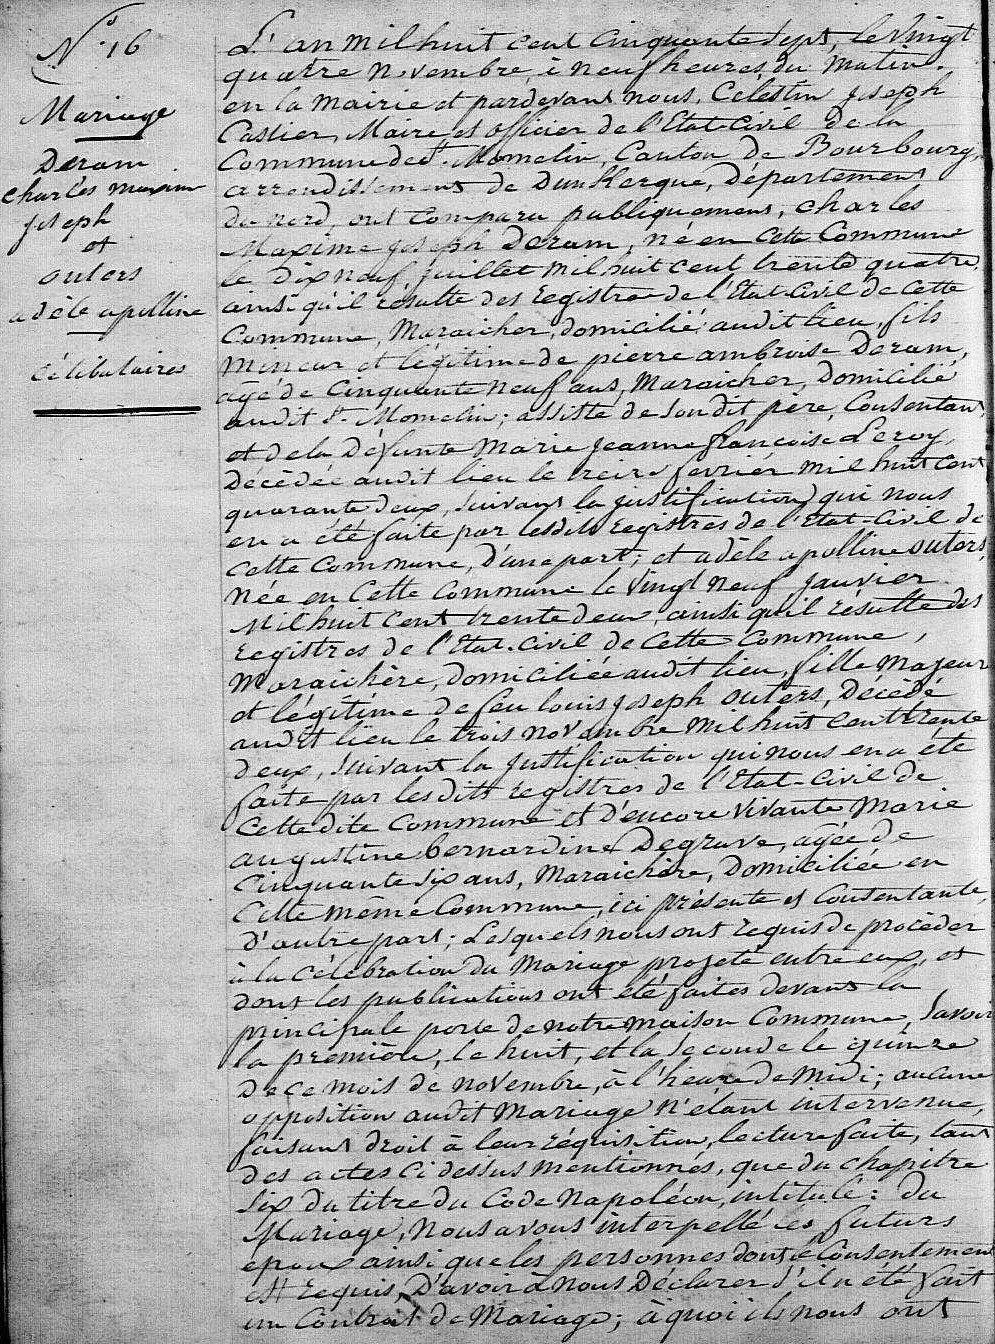 N° 16
Mariage
Deram
Charles maxime
joseph
et
outers
adèle apolline
célibataires
L'an mil huit cent cinquante sept, le vingt
quatre novembre, à neuf heures du matin.
en la mairie et pardevant nous, Célestin joseph
Castier, Maire et officier de l'Etat-Civil de la
Commune de St. Momelin, Canton de Bourbourg,
arrondissement de Dunkerque, Département
du nord, ont comparu publiquement, Charles
Maxime joseph Deram, né en cette Commune
le dix neuf juillet mil huit cent trente quatre
ainsi qu'il résulte des registres de l'Etat-Civil de cette
Commune, Maraicher, domicilié audit lieu, fils
Mineur et légitime de pierre ambroise Deram,
agé de Cinquante neuf ans, Maraicher, Domicilié
audit St. Momelin; assisté de son dit père, Consentant
et de la Défunte Marie Jeanne françoise Leroy,
Décédée audit lieu le treize fevrier mil huit cent
quarante deux, suivant la justification qui nous
en a été faite par lesdits registres de l'Etat-Civil de
cette Commune, D'une part; et adèle apolline outers,
Née en Cette Commune le vingt neuf janvier
Mil huit Cent trente deux, ainsi qu'il résulte des
registres de l'Etat-Civil de Cette Commune,
Maraichère, Domiciliée audit lieu, fille Majeure
et légitime de feu louis joseph outers, Décédé
audit lieu le trois novembre mil huit cent trente
deux, suivant la justification qui nous en a été
faite par lesdits registres de l'Etat-Civil de
Cette dite Commune et D'encore vivante Marie
augustine bernardine Degrave, agée de
Cinquante six ans, Maraichère, Domiciliée en
Cette même Commune, ici présente et Consentante,
D'autre part; Lesquels nous ont requis de procéder
à la Célébration du Mariage projeté entre eux, et
dont les publications ont été faites devant la
principale porte de notre maison Commune, Savoir
la première, le huit, et la Seconde le quinze
de ce mois de novembre, à l'heure de Midi; aucune
opposition audit Mariage n'étant intervenue,
faisant droit à leur réquisition, lecture faite, tant
des actes Ci dessus mentionnés, que du chapitre
Six du titre du Code Napoléon, intitulé: du
Mariage, Nous avons interpellé les futurs
epoux ainsi que les personnes dont le Consentement
est requis, D'avoir à nous Déclarer S'il a été fait
un Contrat de Mariage; à quoi ils nous ont